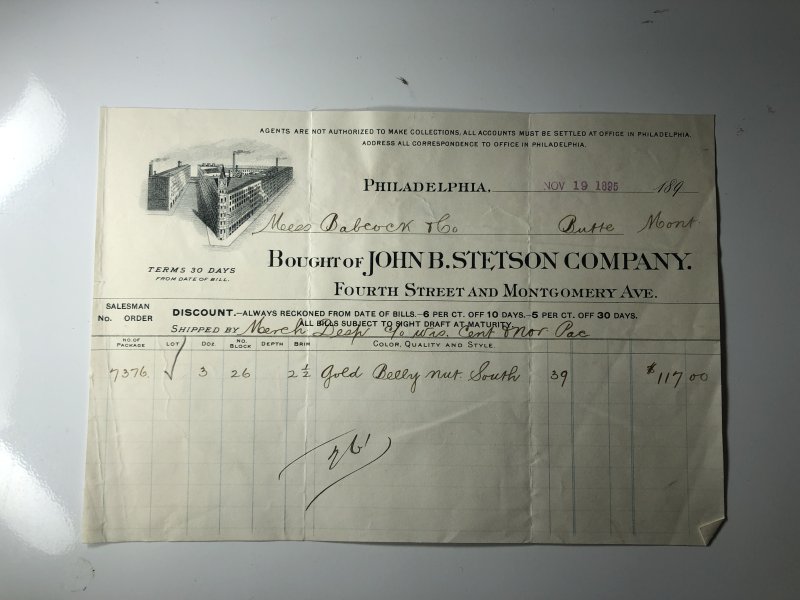 AGENTS ARE NOT AUTHORIZED TO MAKE COLLECTIONS, ALL ACCOUNTS MUST BE SETTLED AT OFFICE IN PHILADELPHIA.
ADDRESS ALL CORRESPONDENCE TO OFFICE IN PHILADELPHIA.
PHILADELPHIA, NOV 19 1895 189
Mess Babcock & Co Butte Mont.
BOUGHT OF JOHN B. STETSON COMPANY.
FOURTH STREET AND MONTGOMERY AVE.
TERMS 30 DAYS
FROM DATE OF BILL.
SALESMAN
No. ORDER
DISCOUNT.—ALWAYS RECKONED FROM DATE OF BILLS.—6 PER CT. OFF 10 DAYS.—5 PER CT. OFF 30 DAYS.
ALL BILLS SUBJECT TO SIGHT DRAFT AT MATURITY.
SHIPPED BY Merch Desp Wis. Cent & Nor Pac
NO. OF PACKAGE LOT DOZ NO. BLOCK DEPTH BRIM COLOR, QUALITY AND STYLE.
7376 ✓ 3 26 2 1/2 Gold Belly nut. South 39 $117 00